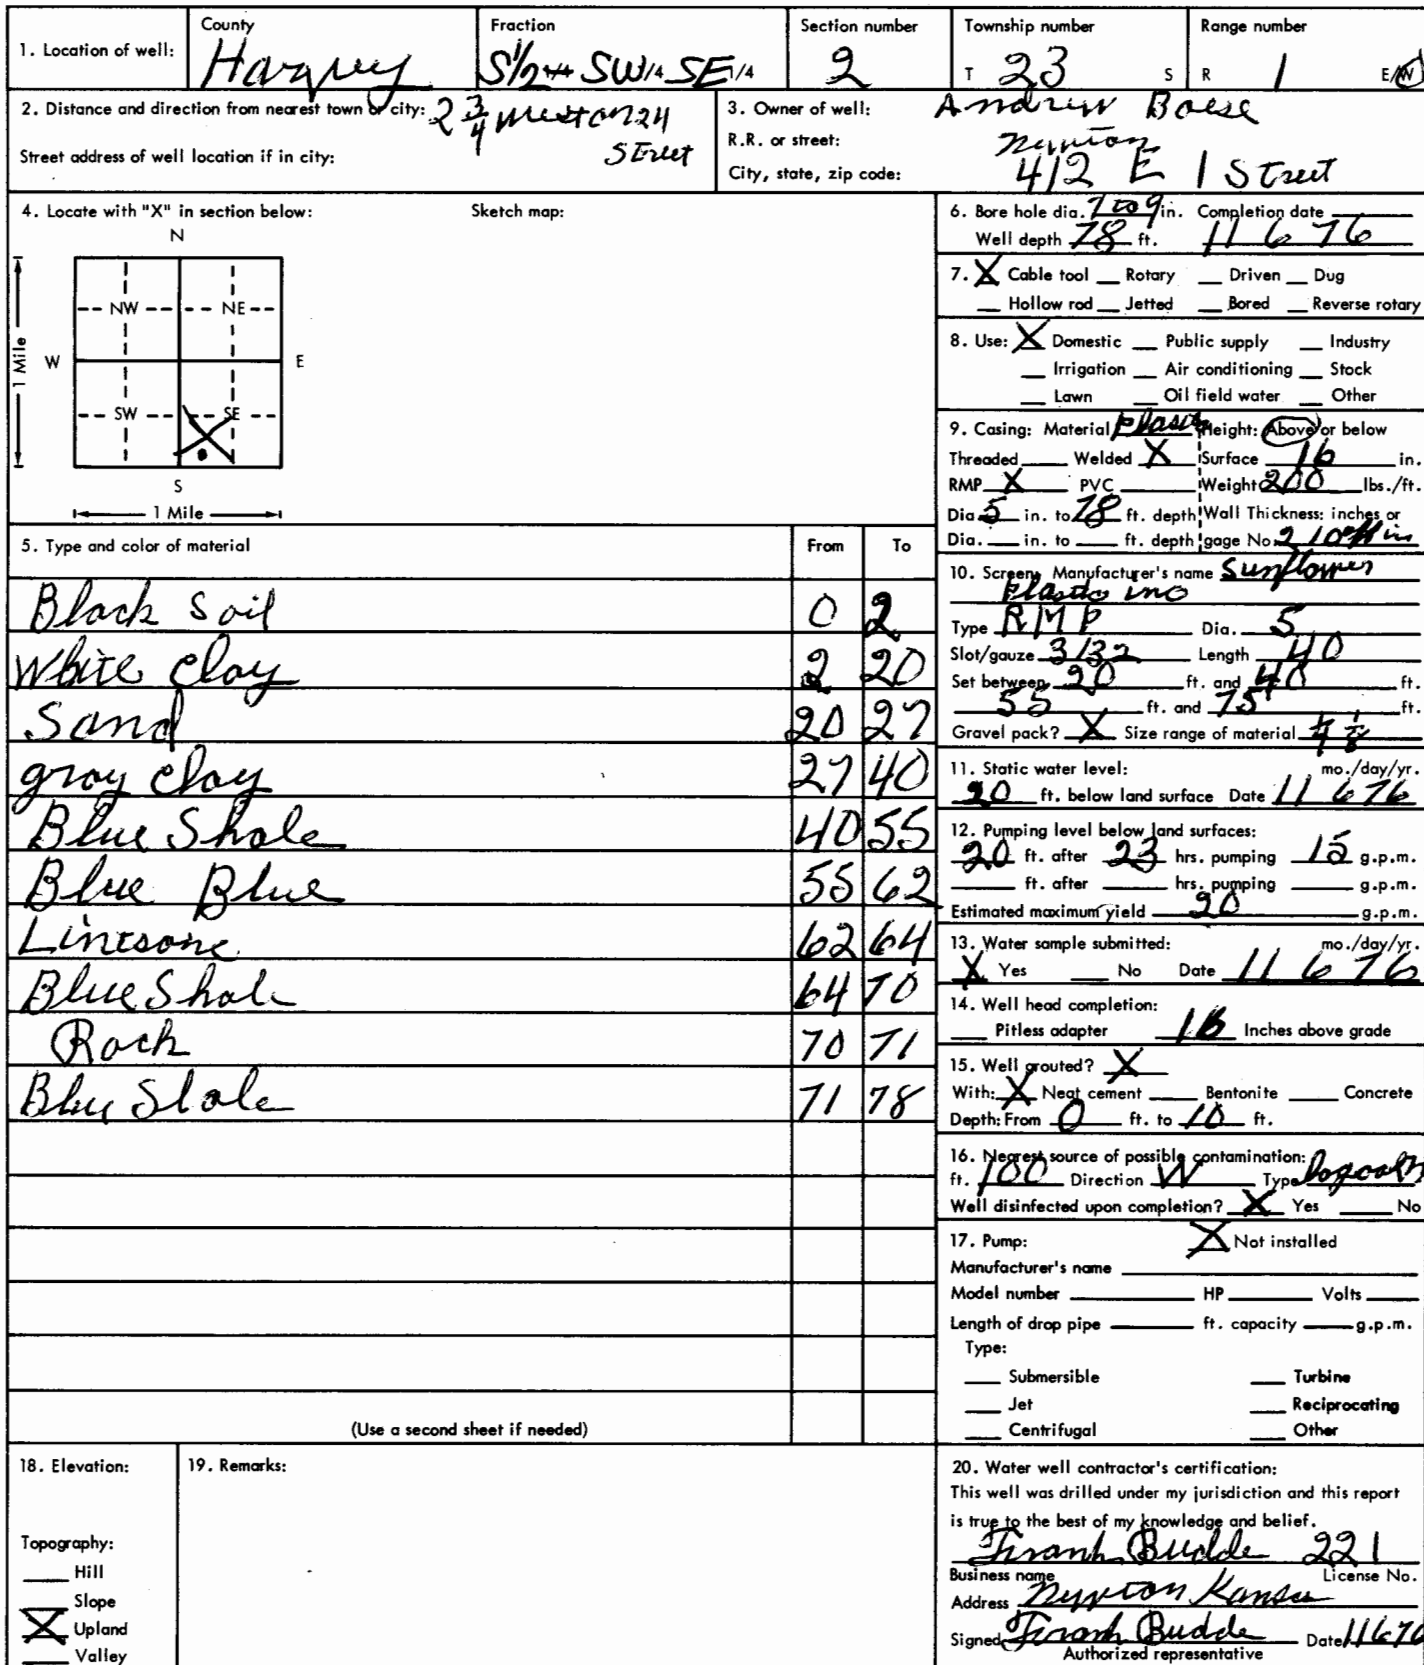 1. Location of well: County Fraction Section number Township number Range number
Harvey S 1/2 SW 1/4 SE 1/4 2 T 23 S R 1 E/W
2. Distance and direction from nearest town or city: 2 3/4 West on 24 Street
Street address of well location if in city:
3. Owner of well: Andrew Boese
R.R. or street: Newton
City, state, zip code: 412 E 1 Street
4. Locate with "X" in section below: Sketch map:
N
NW NE
W E
1 Mile
SW SE
S
1 Mile
5. Type and color of material From To
Black Soil 0 2
White Clay 2 20
Sand 20 27
gray Clay 27 40
Blue Shale 40 55
Blue Blue 55 62
Limtsone 62 64
Blue Shale 64 70
Rock 70 71
Blue Shale 71 78
(Use a second sheet if needed)
6. Bore hole dia. 7 to 9 in. Completion date
Well depth 78 ft. 11 6 76
7. X Cable tool Rotary Driven Dug
Hollow rod Jetted Bored Reverse rotary
8. Use: X Domestic Public supply Industry
Irrigation Air conditioning Stock
Lawn Oil field water Other
9. Casing: Material Plastic Height: Above or below
Threaded Welded X Surface 16 in.
RMP X PVC Weight 200 lbs./ft.
Dia. 5 in. to 78 ft. depth Wall Thickness: inches or
Dia. in. to ft. depth gage No. 210 in
10. Screen: Manufacturer's name Sunflower
Plastic inc
Type RMP Dia. 5
Slot/gauze 3/32 Length 40
Set between 20 ft. and 40 ft.
55 ft. and 75 ft.
Gravel pack? X Size range of material
11. Static water level: mo./day/yr.
20 ft. below land surface Date 11 6 76
12. Pumping level below land surfaces:
20 ft. after 23 hrs. pumping 15 g.p.m.
ft. after hrs. pumping g.p.m.
Estimated maximum yield 20 g.p.m.
13. Water sample submitted: mo./day/yr.
X Yes No Date 11 6 76
14. Well head completion:
Pitless adapter 16 Inches above grade
15. Well grouted? X
With: X Neat cement Bentonite Concrete
Depth: From 0 ft. to 10 ft.
16. Nearest source of possible contamination:
ft. 100 Direction W Type
Well disinfected upon completion? X Yes No
17. Pump: X Not installed
Manufacturer's name
Model number HP Volts
Length of drop pipe ft. capacity g.p.m.
Type:
Submersible Turbine
Jet Reciprocating
Centrifugal Other
18. Elevation:
Topography:
Hill
Slope
X Upland
Valley
19. Remarks:
20. Water well contractor's certification:
This well was drilled under my jurisdiction and this report
is true to the best of my knowledge and belief.
Frank Budde 221
Business name License No.
Address Newton Kansas
Signed Frank Budde Date 11 6 76
Authorized representative